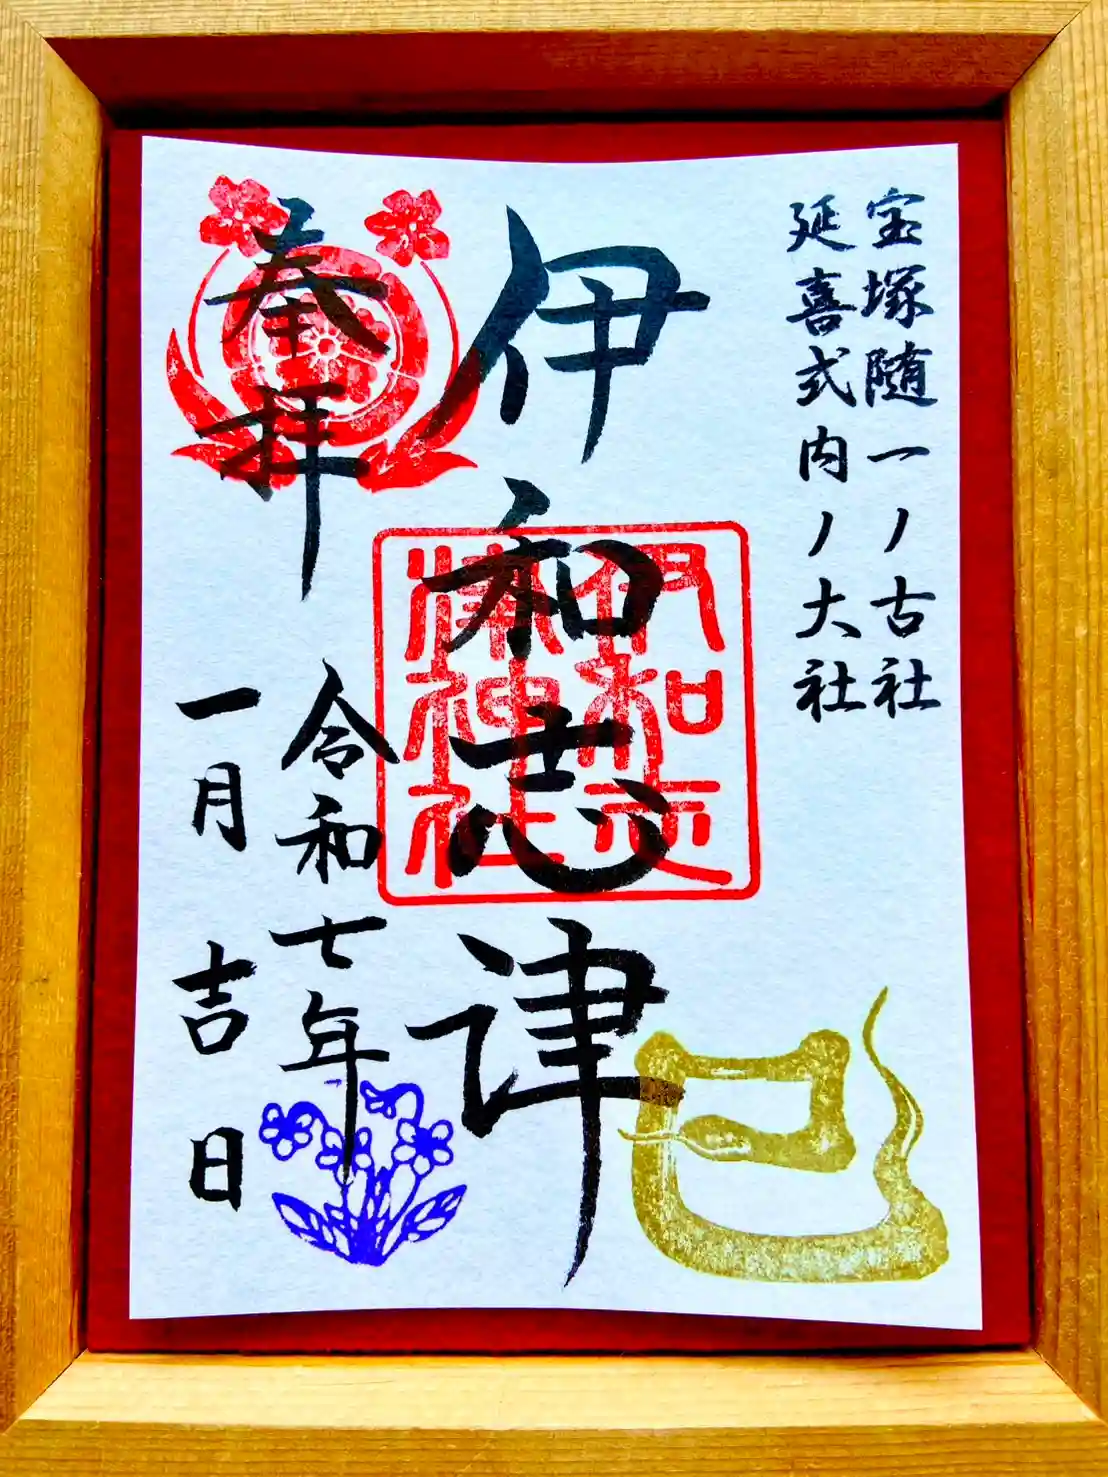 宝塚随一ノ古社
延喜式内ノ大社
伊和志津
伊和志
津神社
奉拝
令和七年
一月吉日
巳